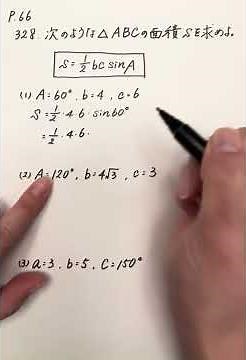 P.66
328. 次のような△ABCの面積Sを求めよ。
S=½bc sinA
(1) A=60°, b=4, c=6
S=½·4·6·sin60°
=½·4·6·
(2) A=120°, b=4√3, c=3
(3) a=3, b=5, C=150°